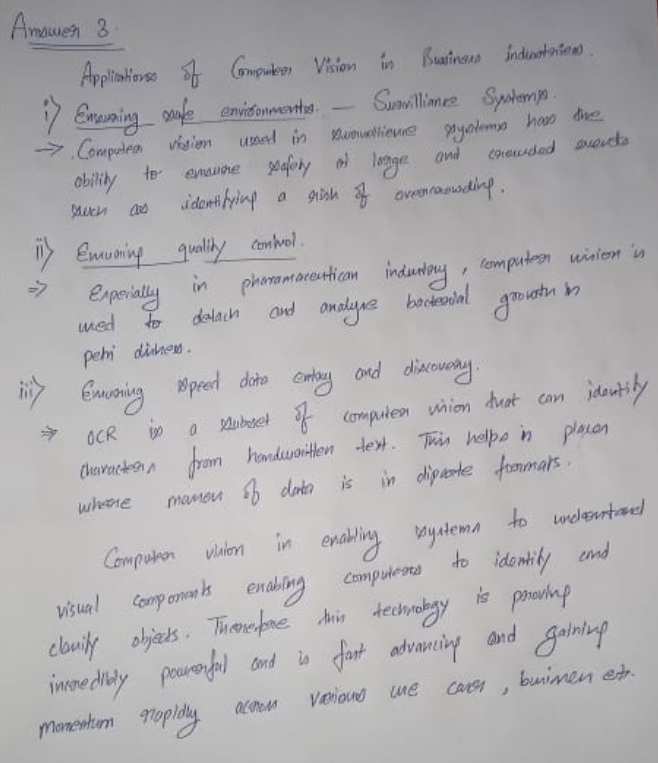 Answer 3.
Applications of Computer Vision in Business industries.
i) Ensuring safe environments. — Survilliance Systems.
→ Computer vision used in survellience systems has the
ability to ensure safety at large and crowded events
such as identifying a risk of overcrowding.
ii) Ensuring quality control.
⇒ Especially in pharamaceutican industry, computer vision is
used to detach and analyse bacterial growth in
petri dishes.
iii) Ensuring speed data entry and discovery.
⇒ OCR is a subset of computer vision that can identify
characters from handwritten text. This helps in places
where masses of data is in diprate formats.
Computer vision in enabling systems to understand
visual components enabling computers to identify and
classify objects. Therefore this technology is proving
incredibly powerful and is fast advancing and gaining
momentum rapidly across various use cases, business etc.